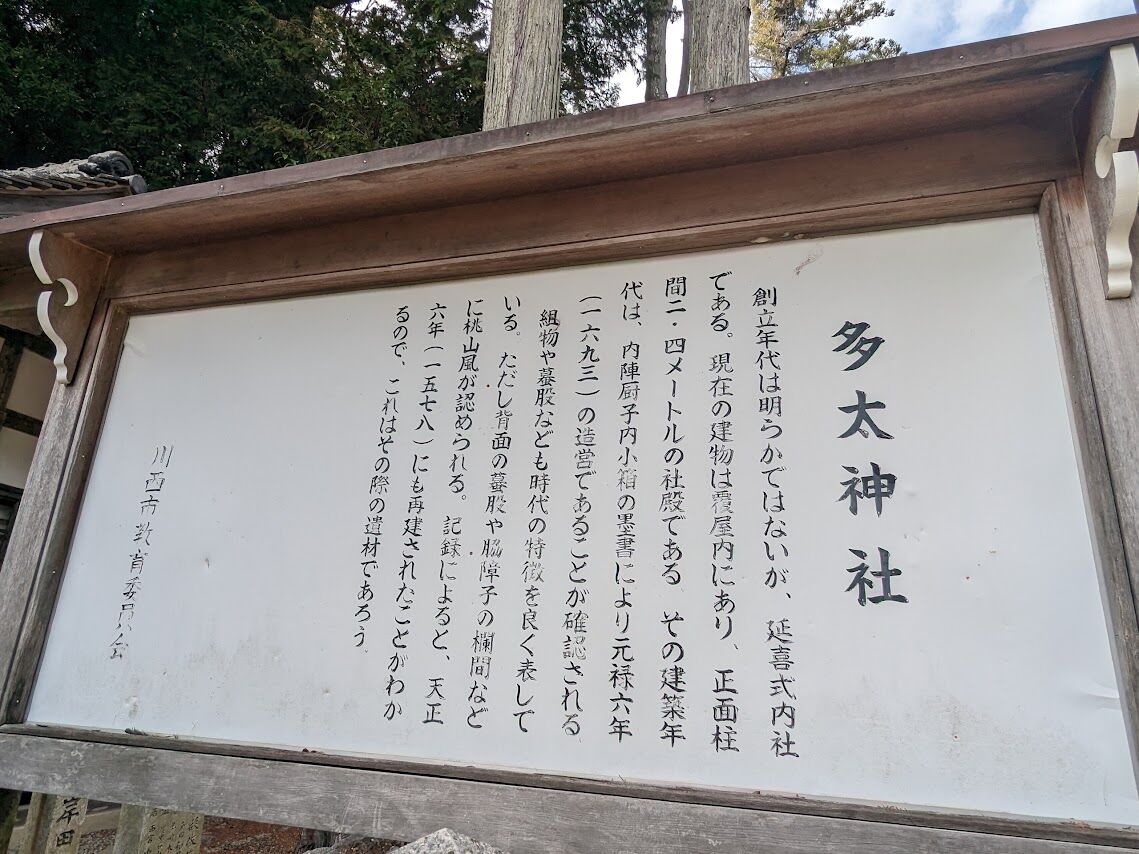 多太神社
創立年代は明らかではないが、延喜式内社
である。現在の建物は覆屋内にあり、正面柱
間二・四メートルの社殿である その建築年
代は、内陣厨子内小箱の墨書により元禄六年
(一六九三)の造営であることが確認される
組物や蟇股なども時代の特徴を良く表して
いる。ただし背面の蟇股や脇障子の欄間など
に桃山風が認められる。記録によると、天正
六年(一五七八)にも再建されたことがわか
るので、これはその際の遺材であろう。
川西市教育委員会
岸田